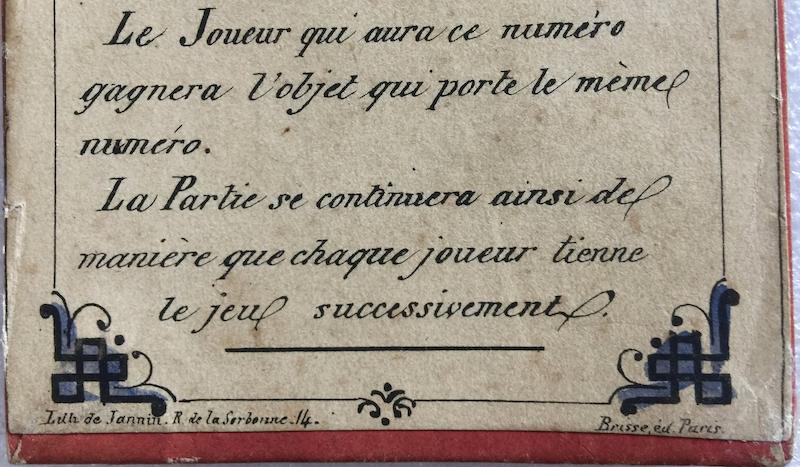 Le Joueur qui aura ce numéro
gagnera l'objet qui porte le mème
numéro.
La Partie se continuera ainsi de
manière que chaque joueur tienne
le jeu successivement.
Lith de Jannin. R. de la Sorbonne. 14.
Brisse, éd. Paris.